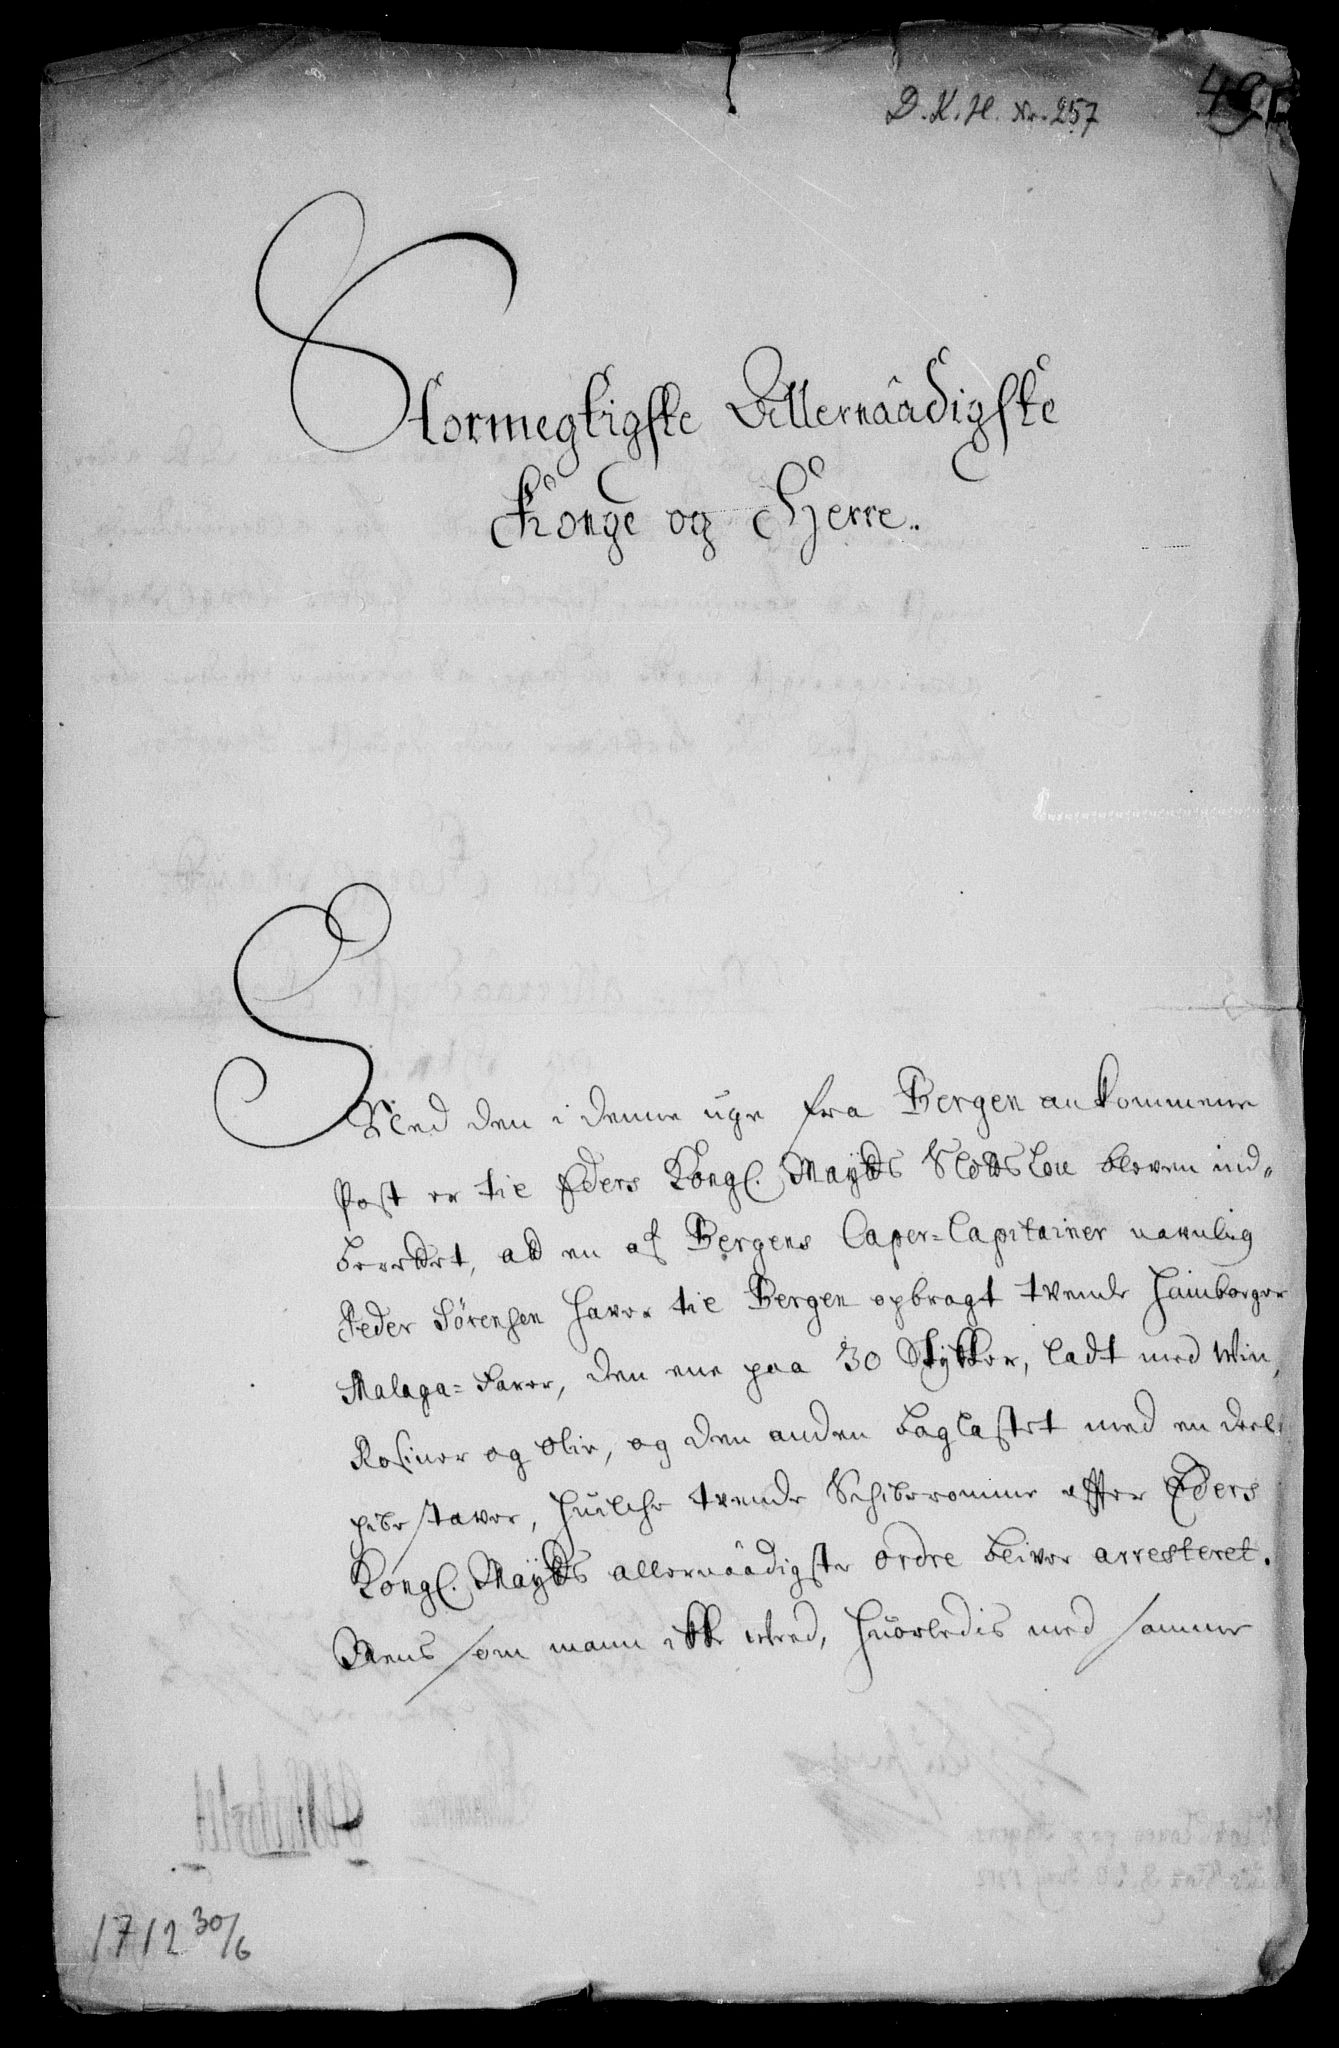 D. K. H. Nr. 257
Stormegtigste Allernaadigste
Konge og Herre..
Med den i denne uge fra Bergen ankommene
Post er til Eders Kongl. Mayts Slotslou bleven ind=
berettet, at en af Bergens Caper=Capitainer navnlig
Peder Sörensen haver til Bergen opbragt tvende Hamborger
Malaga=Farer, den ene paa 30 Stykker, ladt med Win,
Rosiner og olie, og den anden baglastet med en deel
pibe staver, huilche tvende Schibe komme efter Eders
Kongl. Mayts allernaadigste ordre bliver arresteret.
Mens som mann ikke veed, huorledis med samme
1712 30/6